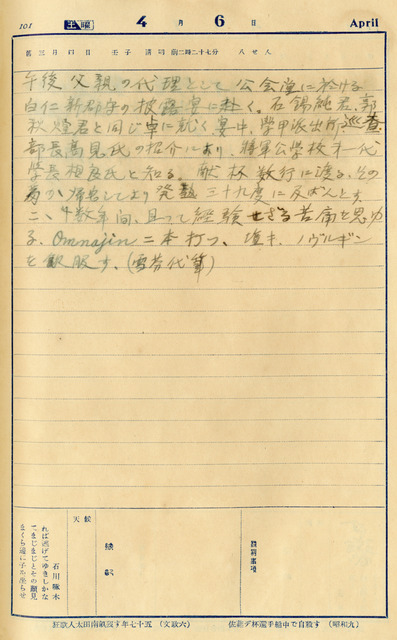 101 土曜 4月6日 April
舊三月四日 壬子 清明 前二時二十七分 八せん
午後父親の代理として公会堂に於ける
白仁新郡守の披露宴に赴く。石錫純君、郭
秋煌君と同じ卓に就く宴中、學甲派出所巡査
部長高見氏の紹介により、将軍公学校才一代
学長相良氏と知る。献杯数行に渡る、その
為か帰宅してより発熱三十九度に及ばんとす。
二、十数年間、且って経験せざる苦痛を思ゆ
る、Omnajin 二本打つ、塩キ、ノヴルギン
を飲服す、(雪芬代筆)
天候
發信
受信
石川啄木
れば逃げてゆきしかな
て、まじまじとその顔見
まくら邊に子を坐らせ
狂歌人太田南畝歿す年七十五(文政六)
佐藤デ杯選手組中で自殺す(昭和九)